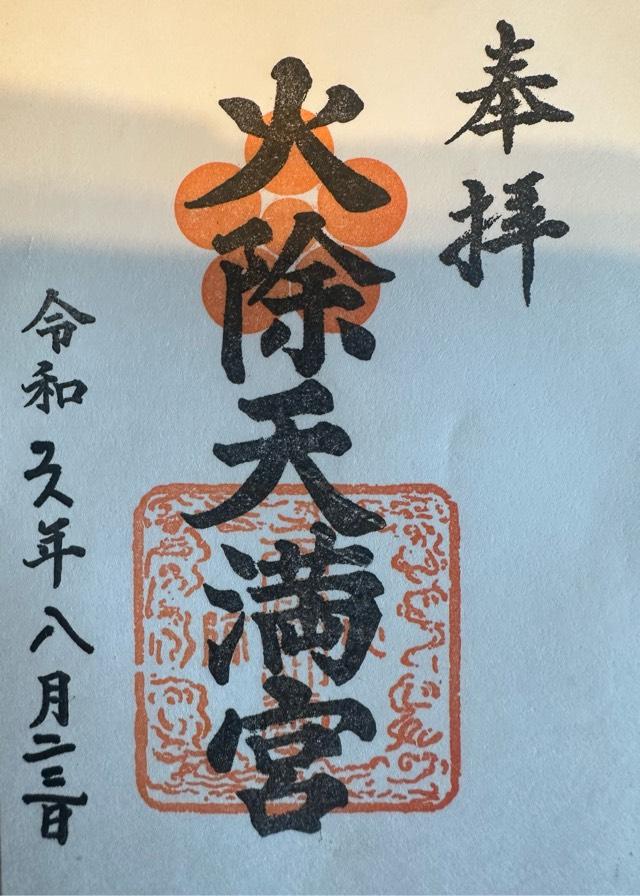 奉拝
火除天満宮
令和六年八月二三日